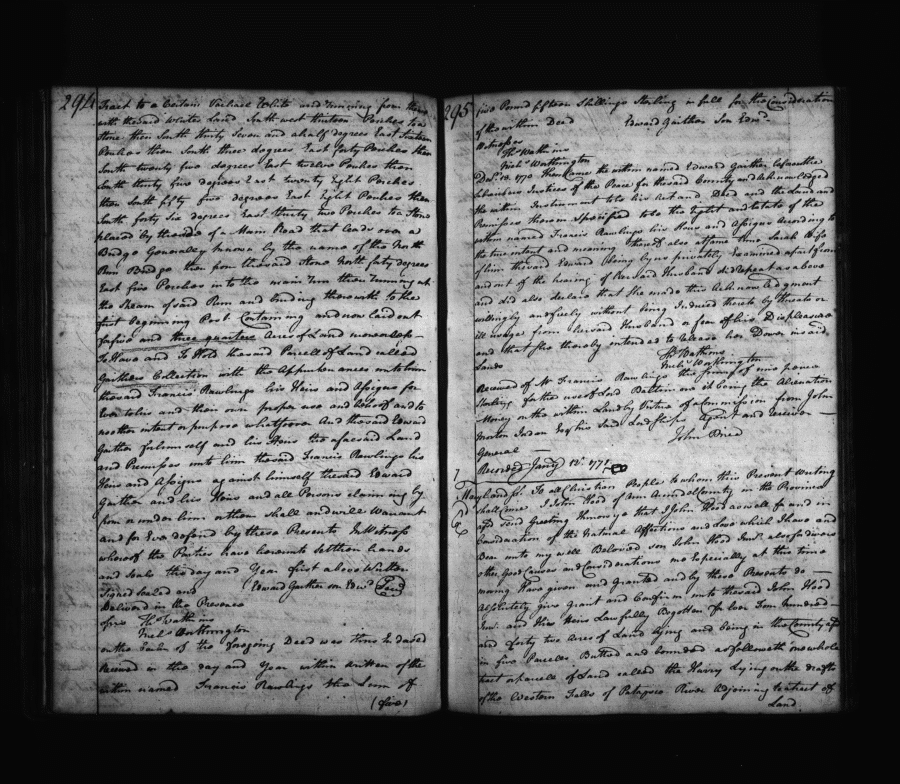 294
Tract to a Certain Vachael White and running from thence
with the said Whites Land South west thirteen Perches to a
Stone then South thirty Seven and a half degrees East Sixteen
Perches then South three degrees East forty Perches then
South twenty five degrees East twelve Perches then
South thirty five degrees East Twenty Eight Perches
then South fifty five degrees East Eight Perches then
South forty Six degrees East thirty two Perches to a Stone
placed by the side of a Main Road that leads over a
Bridge Generally known by the name of the North
Run Bridge then from the said Stone North forty degrees
East five Perches into the main Run then running with
the Stream of said Run and bounding therewith to the
first beginning Post Containing and now laid out
for five and three quarters Acres of Land more or less
To Have and To Hold the said Parcell of Land called
Gaithers Collection with the Appurtenances unto him
the said Francis Rawlings his Heirs and Assigns for
Ever to his and their own proper use and behoof and to
no other intent or purpose whatsoever And the said Edward
Gaither for himself and his Heirs the aforesaid Land
and Premisses unto him the said Francis Rawlings his
Heirs and Assigns against himself the said Edward
Gaither and his Heirs and all Persons claiming by
from or under him or them shall and will Warrant
and for Ever defend by these Presents In Witness
whereof the Parties have hereunto set their hands
and Seals the day and Year first above Written
Signed Sealed and Edward Gaither son Edwd Seal
Delivered in the Presence
of us Ths Watkins
Nichs Worthington
on the back of the foregoing Deed was thus Endorsed
Received on the day and Year within written of the
within named Francis Rawlings the Sum of
(five)
295
five Pound fifteen Shillings Sterling in full for the Consideration
of the within Deed Edward Gaither Son Edwd
Witnesses
Ths Watkins
Nichs Worthington
Then Came the within named Edward Gaither before the
Subscribers Justices of the Peace for the said County and acknowledged
the within Instrument to be his Act and Deed and the Land and
Premisses therein Specified to be the right and Estate of the
within named Francis Rawlings his Heirs and Assigns According to
the true intent and meaning thereof also at same time Sarah Wife
of him the said Edward being by us privately Examined apart from
and out of the hearing of her said Husband did repeat as above
and did also declare that she made this Acknowledgment
willingly and freely without being Induced thereto by threats or
ill usage from her said Husband or fear of his Displeasure
and that she thereby intended to release her Dower in said
Lands Ths Watkins
Nichs Worthington
Received of Mr Francis Rawlings
Sterling for the use of Lord Baltimore it being the Alienation
Money on the within Land by Virtue of a Commission from John
Morton Jordan Esqr his Said Lordships Agent and Receiver
General John Brice
Recorded Jany
Maryland ss. To all Christian People to whom this Present Writing
shall come I John Hood of Ann Arundel County in the Province
afd Send Greeting Know ye that I John Hood as well for and in
Consideration of the Natural Affections and Love which I have and
Bear unto my well Beloved son John Hood Junr also for divers
other Good Causes and Considerations me Especially at this time
moving Have given and Granted and by these Presents do
Absolutely give Grant and Confirm unto the said John Hood
Junr and His Heirs Lawfully Begotten for Ever hundred
and forty two Acres of Land lying and being in the County afd
in five Parcels Butted and bounded as followeth one whole
tract or parcel of Land called the Lying on the drafts
of the Western Falls of Patapsco River Adjoining to a tract of
Land